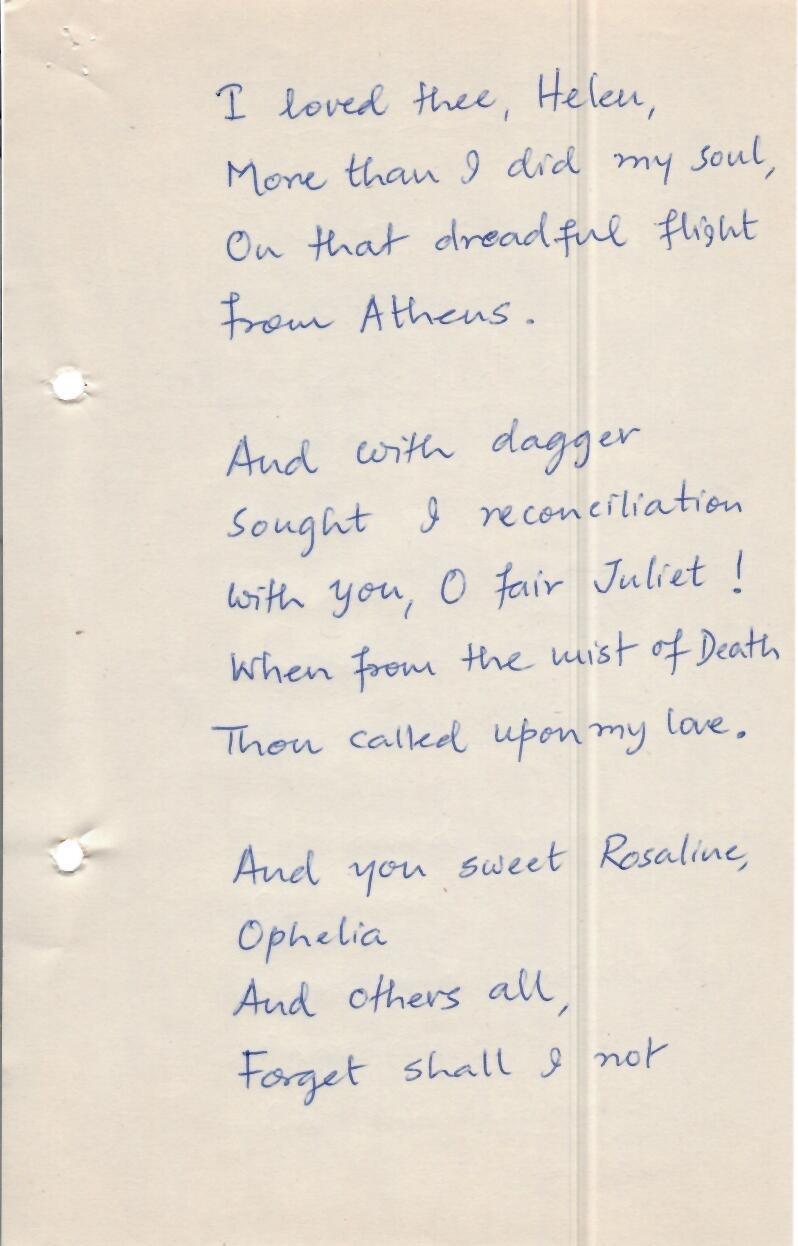 I loved thee, Helen,
More than I did my soul,
On that dreadful flight
from Athens.
And with dagger
Sought I reconciliation
with you, O fair Juliet!
When from the mist of Death
Thou called upon my love.
And you sweet Rosaline,
Ophelia
And others all,
Forget shall I not